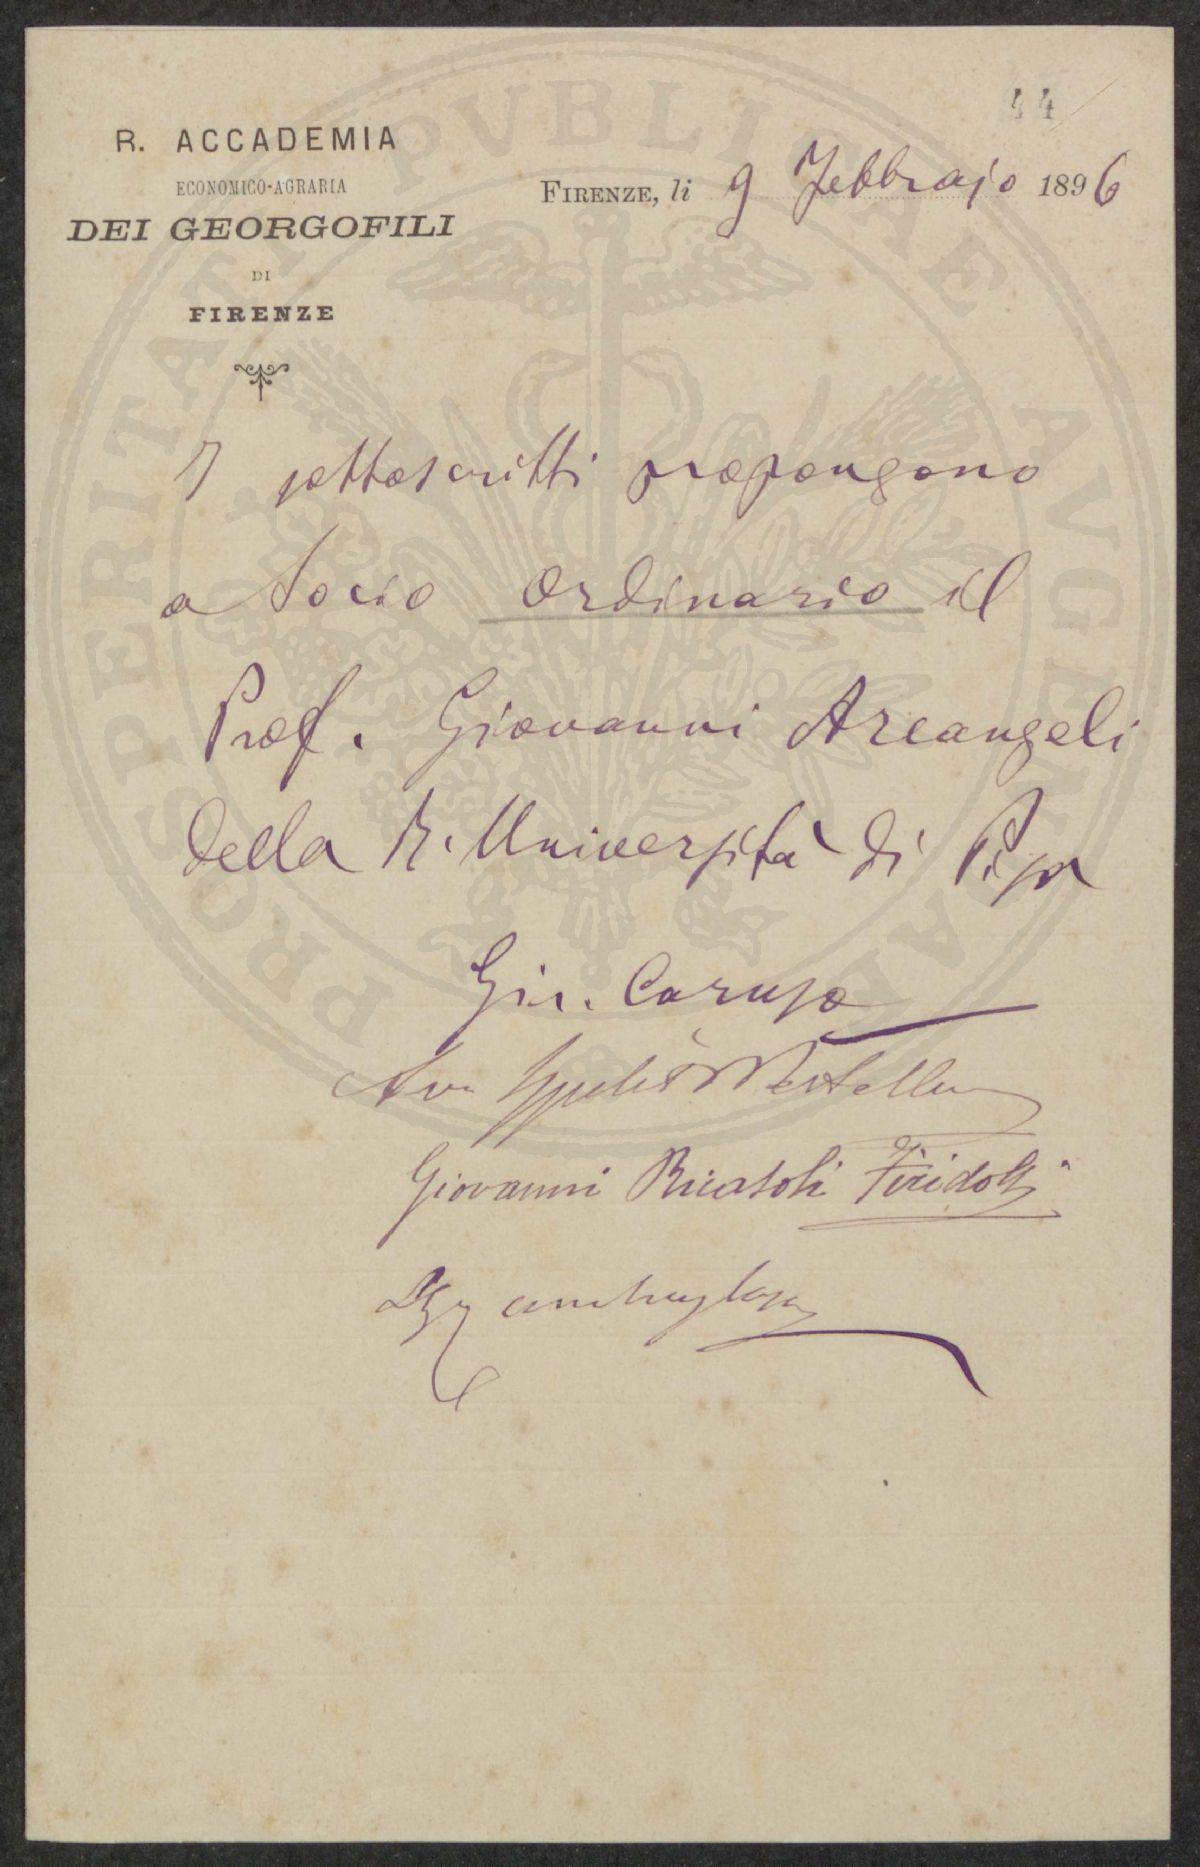 44
R. ACCADEMIA
ECONOMICO-AGRARIA
DEI GEORGOFILI
DI
FIRENZE
FIRENZE, li 9 Febbrajo 1896
PROSPERITATI PVBLICAE AVGENDAE
I sottoscritti propongono
a Socio Ordinario il
Prof. Giovanni Arcangeli
della R. Università di Pisa
Gir. Caruso
Giovanni Ricasoli Firidolfi